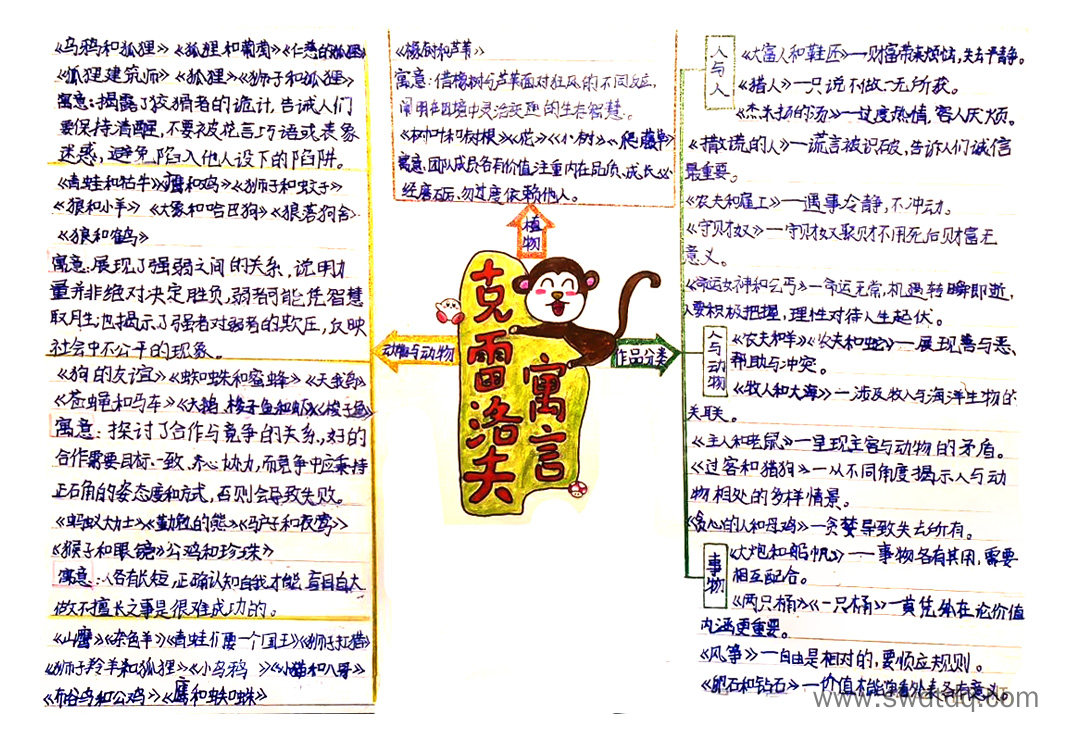 《乌鸦和狐狸》《狐狸和葡萄》《仁慈的狐狸》
《狐狸建筑师》《狐狸》《狮子和狐狸》
寓意:揭露了狡猾者的诡计,告诫人们
要保持清醒,不要被花言巧语或表象
迷惑,避免陷入他人设下的陷阱。
《青蛙和牯牛》《鹰和鸡》《狮子和蚊子》
《狼和小羊》《大象和哈巴狗》《狼落狗舍》
《狼和鹤》
寓意:展现了强弱之间的关系,说明力
量并非绝对决定胜负,弱者可能凭智慧
取胜;也揭示了强者对弱者的欺压,反映
社会中不公平的现象。
《狗的友谊》《蜘蛛和蜜蜂》《天鹅
《苍蝇和马车》《大鹅、梭子鱼和虾》《梭子鱼》
寓意:探讨了合作与竞争的关系,好的
合作需要目标一致、齐心协力,而竞争中应秉持
正确的姿态度和方式,否则会导致失败。
《蚂蚁大力士》《勤勉的熊》《驴子和夜莺》
《猴子和眼镜》公鸡和珍珠》
寓意:人各有长短,正确认知自我才能,盲目自大
做不擅长之事是很难成功的。
《山鹰》《杂色羊》《青蛙们要一个国王》《狮子打猎》
《狮子羚羊和狐狸》《小乌鸦》《小猫和八哥》
《布谷鸟和公鸡》《鹰和蜘蛛》
《橡树和芦苇》
寓意:借橡树与芦苇面对狂风的不同反应,
阐明在困境中灵活变通的生存智慧。
《树叶和树根》《花》《小树》
寓意:团队成员各有价值,注重内在品质、成长必
经磨砺、勿过度依赖他人。
植物
克雷洛夫
寓言
动物与动物
作品分类
人与人
《大富人和鞋匠》—财富带来烦恼,失去平静。
《猎人》—只说不做一无所获。
《杰米扬的汤》—过度热情,客人厌烦。
《撒谎的人》—谎言被识破,告诉人们诚信
最重要。
《农夫和雇工》—遇事冷静,不冲动。
《守财奴》—守财奴聚财不用死后财富无
意义。
《命运女神和乞丐》—命运无常,机遇转瞬即逝,
人要积极把握,理性对待人生起伏。
人与动物
《农夫和羊》《农夫和蛇》—展现善与恶、
帮助与冲突。
《牧人和大海》—涉及牧人与海洋生物的
关联。
《主人和老鼠》—呈现主客与动物的矛盾。
《过客和猎狗》—从不同角度揭示人与动
物相处的多样情景。
《贪心的人和母鸡》—贪婪导致失去所有。
事物
《大炮和船帆》—事物各有其用,需要
相互配合。
《两只桶》《一只桶》—莫凭外在论价值
内涵更重要。
《风筝》—自由是相对的,要顺应规则。
《卵石和钻石》—价值不能单看外表各有意义。
www.swdtdq.com